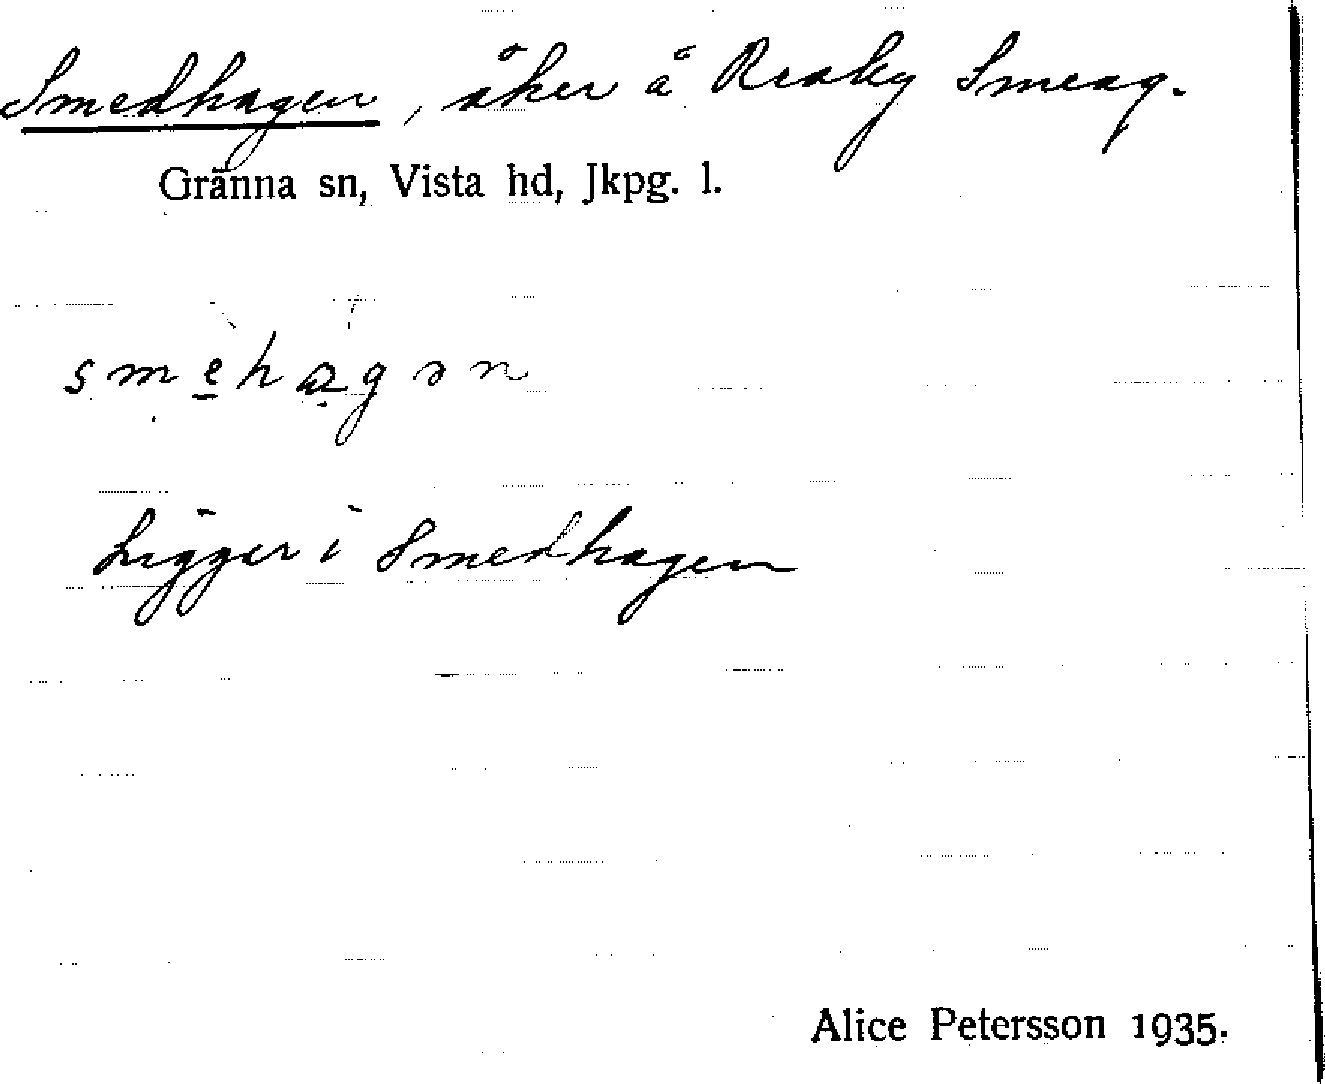 Smedhagen, åker å Reaby Smeag.
Gränna sn, Vista hd, Jkpg. l.
smehagən
Ligger i Smedhagen
Alice Petersson 1935.